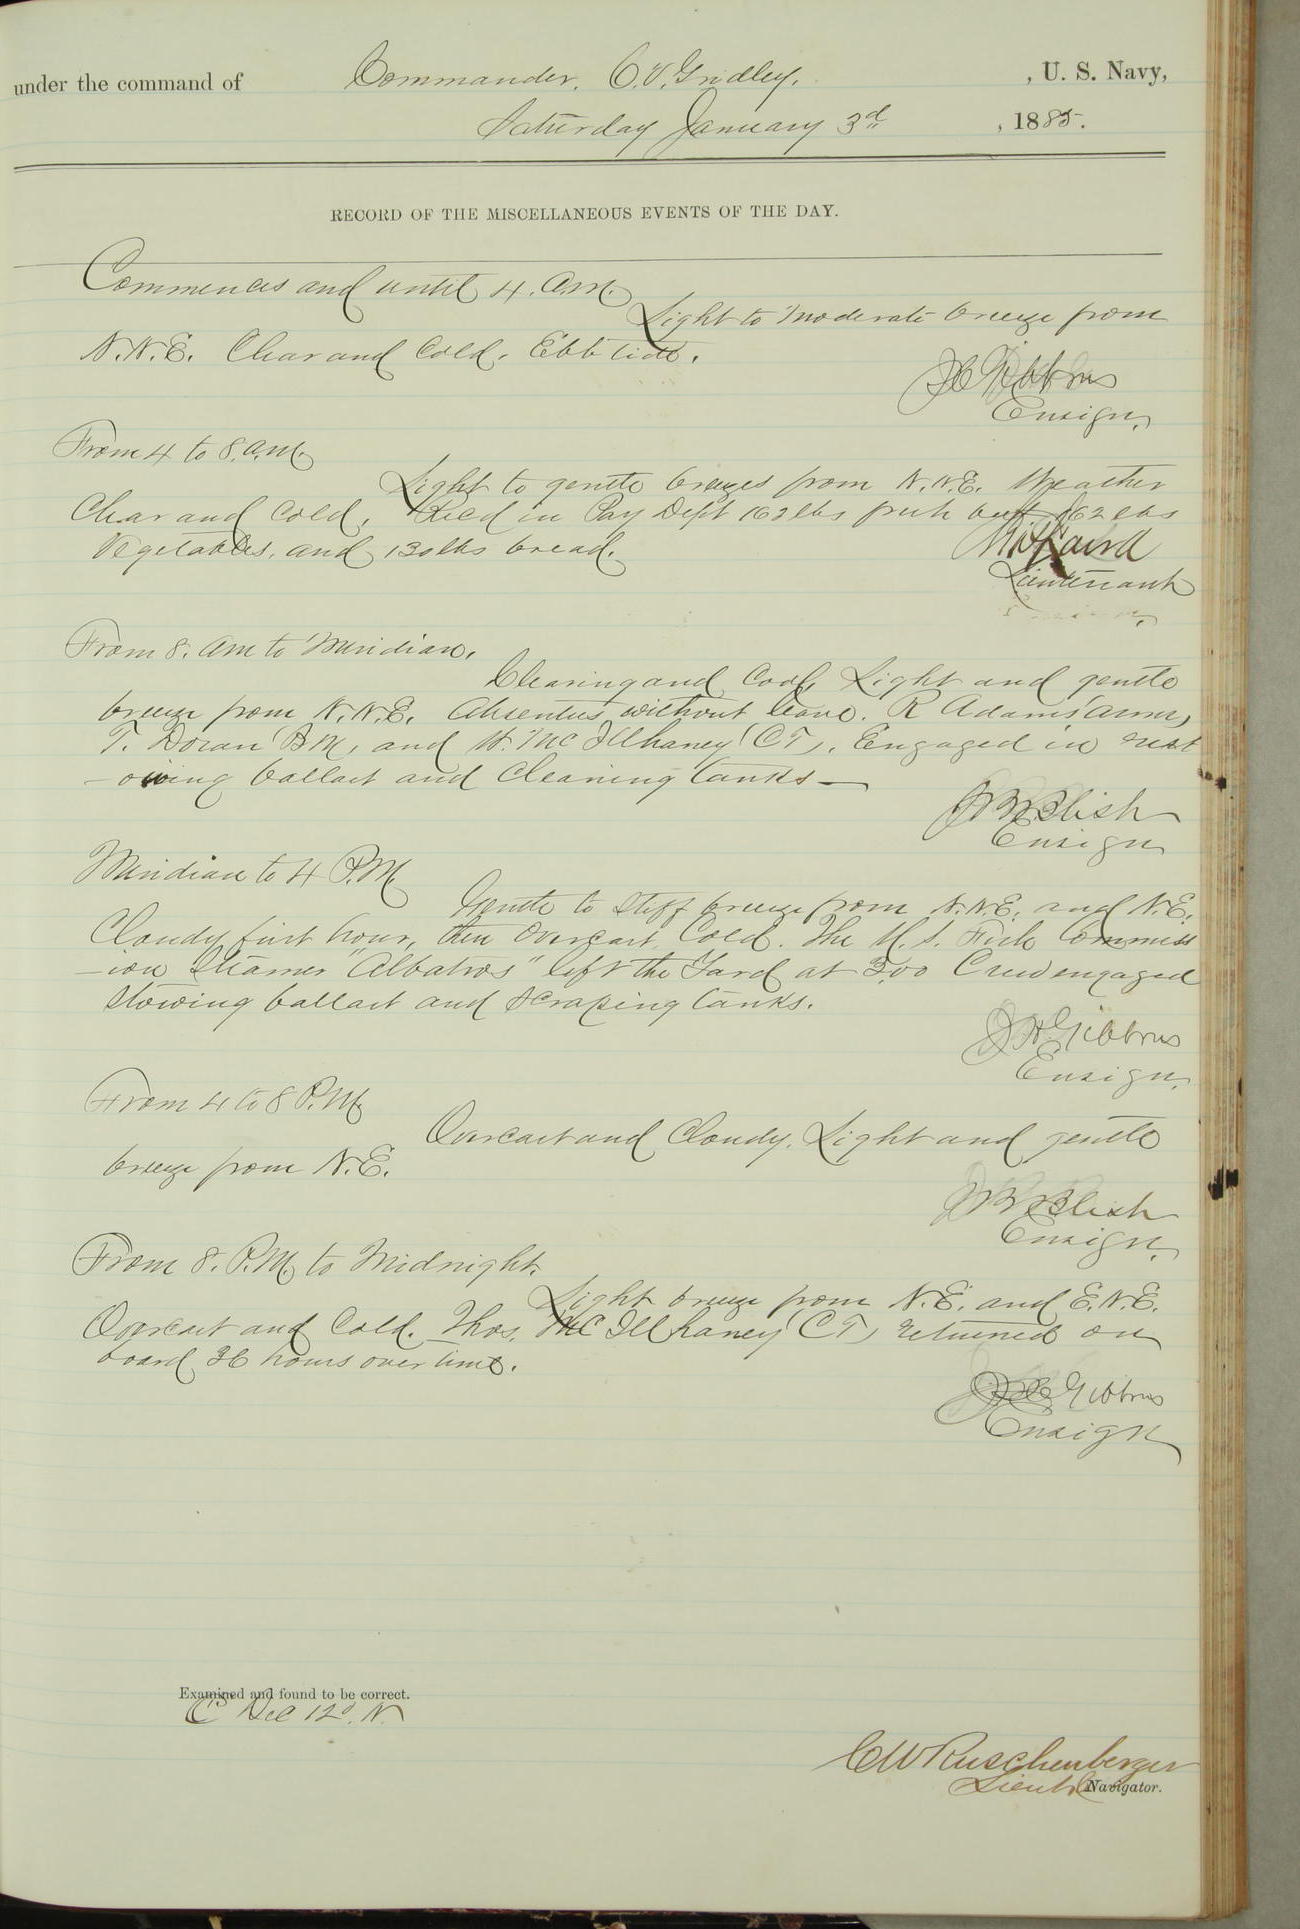 under the command of Commander. C. V. Gridley. , U. S. Navy,
Saturday January 3d , 1885.
RECORD OF THE MISCELLANEOUS EVENTS OF THE DAY.
Commences and until 4. a.m.
Light to moderate breeze from
N.N.E. Clear and Cold. Ebb tide.
Gibbons
Ensign.
From 4 to 8. a.m.
Light to gentle breezes from N.N.E. Weather
Clear and Cold. Recd in Pay Dept 162 lbs fresh beef 162 lbs
Vegetables, and 130 lbs bread.
Laird
Lieutenant
From 8. am to Meridian.
Clearing and Cool, Light and gentle
breeze from N.N.E. Absentees without leave. R Adams (Armr)
T. Doran (BM), and W. McIllhaney (CT). Engaged in rest
-owing ballast and Cleaning tanks—
Blish
Ensign
Meridian to 4 P.M
Gentle to stiff breeze from N.N.E. and N.E.
Cloudy first hour, then Overcast. Cold. The U. S. Fish Commiss
-ion Steamer "Albatros" left the Yard at 3.00 Crew engaged
Stowing ballast and scraping tanks.
Gibbons
Ensign.
From 4 to 8 P.M.
Overcast and Cloudy. Light and gentle
breeze from N.E.
Blish
Ensign.
From 8. P.M. to Midnight.
Light breeze from N.E. and E.N.E.
Overcast and Cold. Thos. McIllhaney (CT) returned on
board 36 hours over time.
Gibbons
Ensign
Examined and found to be correct.
C W Ruschenberger
Lieut & Navigator.